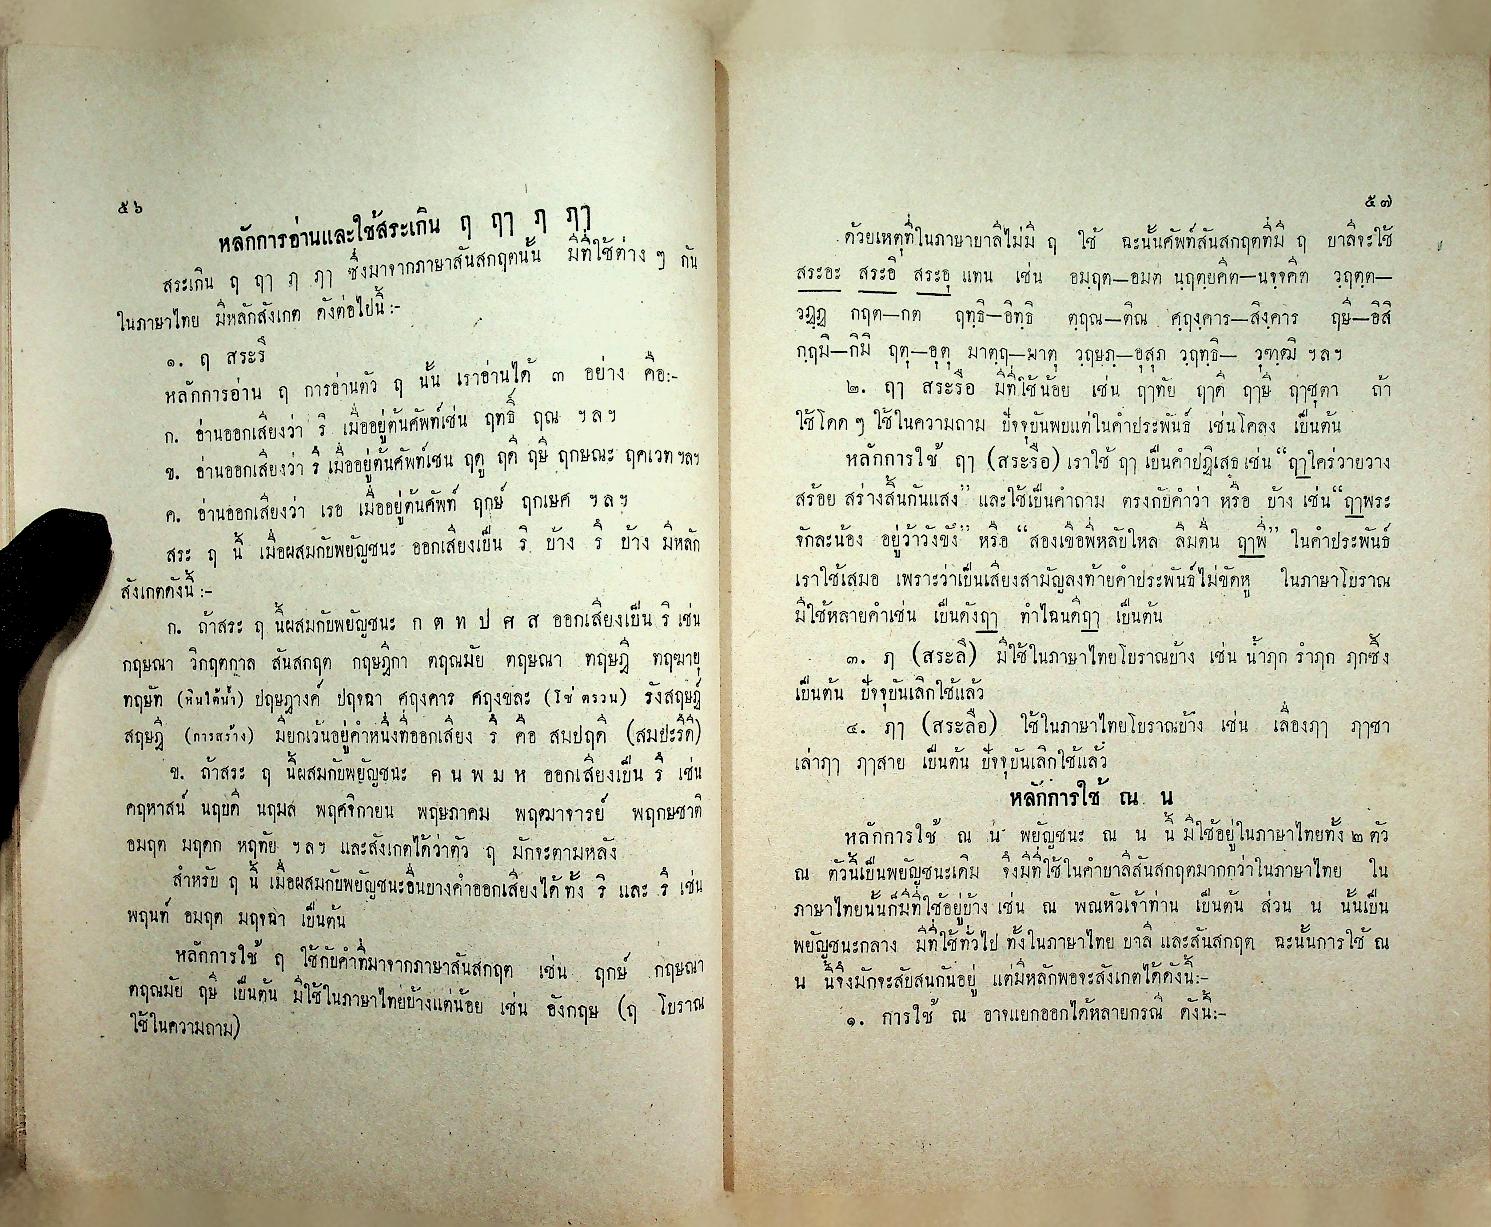 ๕๖
หลักการอ่านและใช้สระเกิน ฤ ฤๅ ฦ ฦๅ
สระเกิน ฤ ฤๅ ฦ ฦๅ ซึ่งมาจากภาษาสันสกฤตนั้น มีที่ใช้ต่าง ๆ กัน
ในภาษาไทย มีหลักสังเกต ดังต่อไปนี้:-
๑. ฤ สระรึ
หลักการอ่าน ฤ การอ่านตัว ฤ นั้น เราอ่านได้ ๓ อย่าง คือ:-
ก. อ่านออกเสียงว่า ริ เมื่ออยู่ต้นศัพท์เช่น ฤทธิ์ ฤณ ฯลฯ
ข. อ่านออกเสียงว่า รึ เมื่ออยู่ต้นศัพท์เช่น ฤดู ฤดี ฤษี ฤกษณะ ฤคเวท ฯลฯ
ค. อ่านออกเสียงว่า เรอ เมื่ออยู่ต้นศัพท์ ฤกษ์ ฤกเษศ ฯลฯ
สระ ฤ นี้ เมื่อผสมกับพยัญชนะ ออกเสียงเป็น ริ บ้าง รึ บ้าง มีหลัก
สังเกตดังนี้ :-
ก. ถ้าสระ ฤ นี้ผสมกับพยัญชนะ ก ต ท ป ศ ส ออกเสียงเป็น ริ เช่น
กฤษณา วิกฤตกาล สันสกฤต กฤษฎีกา ตฤณมัย ตฤษณา ทฤษฎี ทฤฆายุ
ทฤษัท (หินใต้น้ำ) ปฤษฎางค์ ปฤจฉา ศฤงคาร ศฤงขละ (โซ่ตรวน) รังสฤษฎ์
สฤษฎี (การสร้าง) มียกเว้นอยู่คำหนึ่งที่ออกเสียง รึ คือ สมปฤดี (สมปะรึดี)
ข. ถ้าสระ ฤ นี้ผสมกับพยัญชนะ ค น พ ม ห ออกเสียงเป็น รึ เช่น
คฤหาสน์ นฤบดี นฤมล พฤศจิกายน พฤษภาคม พฤฒาจารย์ พฤกษชาติ
อมฤต มฤตก หฤทัย ฯลฯ และสังเกตได้ว่าตัว ฤ มักจะตามหลัง
สำหรับ ฤ นี้ เมื่อผสมกับพยัญชนะอื่นบางคำออกเสียงได้ ทั้ง ริ และ รึ เช่น
พฤนท์ อมฤต มฤจฉา เป็นต้น
หลักการใช้ ฤ ใช้กับคำที่มาจากภาษาสันสกฤต เช่น ฤกษ์ กฤษณา
ตฤณมัย ฤษี เป็นต้น มีใช้ในภาษาไทยบ้างแต่น้อย เช่น อังกฤษ (ฤ โบราณ
ใช้ในความถาม)
๕๗
ด้วยเหตุที่ในภาษาบาลีไม่มี ฤ ใช้ ฉะนั้นศัพท์สันสกฤตที่มี ฤ บาลีจะใช้
สระอะ สระอิ สระอุ แทน เช่น อมฺฤต—อมต นฺฤตฺยคีต—นจฺจคีต วฺฤตฺต—
วฏฺฏ กฤต—กต ฤทฺธิ—อิทฺธิ ตฺฤณ—ติณ ศฺฤงฺคาร—สิงฺคาร ฤษิ—อิสิ
กฺฤมิ—กิมิ ฤตุ—อุตุ มาตฺฤ—มาตุ วฺฤษภ—อุสุภ วฺฤทฺธิ— วุฑฺฒิ ฯลฯ
๒. ฤๅ สระรือ มีที่ใช้น้อย เช่น ฤๅทัย ฤๅดี ฤๅษี ฤๅชุตา ถ้า
ใช้โดด ๆ ใช้ในความถาม ปัจจุบันพบแต่ในคำประพันธ์ เช่นโคลง เป็นต้น
หลักการใช้ ฤๅ (สระรือ) เราใช้ ฤๅ เป็นคำปฏิเสธ เช่น “ฤๅใคร่วายวาง
สร้อย สร่างสิ้นกันแสง” และใช้เป็นคำถาม ตรงกับคำว่า หรือ บ้าง เช่น “ฤๅพระ
จักละน้อง อยู่ว้าวังขัง” หรือ “สองเขือพี่หลับใหล ลืมตื่น ฤๅพี่” ในคำประพันธ์
เราใช้เสมอ เพราะว่าเป็นเสียงสามัญลงท้ายคำประพันธ์ไม่ขัดหู ในภาษาโบราณ
มีใช้หลายคำเช่น เป็นดังฤๅ ทำไฉนดีฤๅ เป็นต้น
๓. ฦ (สระลึ) มีใช้ในภาษาไทยโบราณบ้าง เช่น น้ำฦก รำฦก ฦกซึ้ง
เป็นต้น ปัจจุบันเลิกใช้แล้ว
๔. ฦๅ (สระลือ) ใช้ในภาษาไทยโบราณบ้าง เช่น เลื่องฦๅ ฦๅชา
เล่าฦๅ ฦๅสาย เป็นต้น ปัจจุบันเลิกใช้แล้ว
หลักการใช้ ณ น
หลักการใช้ ณ น พยัญชนะ ณ น นี้ มีใช้อยู่ในภาษาไทยทั้ง ๒ ตัว
ณ ตัวนี้เป็นพยัญชนะเดิม จึงมีที่ใช้ในคำบาลีสันสกฤตมากกว่าในภาษาไทย ใน
ภาษาไทยนั้นก็มีที่ใช้อยู่บ้าง เช่น ณ พณหัวเจ้าท่าน เป็นต้น ส่วน น นั้นเป็น
พยัญชนะกลาง มีที่ใช้ทั่วไป ทั้งในภาษาไทย บาลี และสันสกฤต ฉะนั้นการใช้ ณ
น นี้จึงมักจะสับสนกันอยู่ แต่มีหลักพอจะสังเกตได้ดังนี้:-
๑. การใช้ ณ อาจแยกออกได้หลายกรณี ดังนี้:-